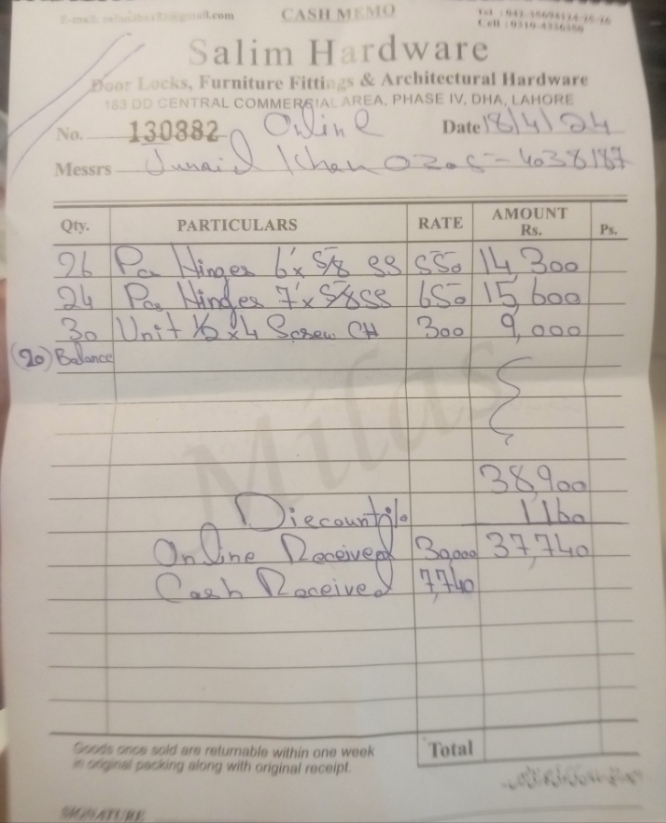 CASH MEMO
Salim Hardware
Door Locks, Furniture Fittings & Architectural Hardware
183 DD CENTRAL COMMERSIAL AREA, PHASE IV, DHA, LAHORE
No. 130882 Online Date 18/4/24
Messrs Junaid Khan
Qty. PARTICULARS RATE AMOUNT Rs. Ps.
26 Hinges 6'x 5/8 SS 550 14,300
24 Hinges 7'x 5/8 SS 650 15,600
30 Unit 1/2 x4 Screw CH 300 9,000
(20) Balance
Milas
38,900
Diecount % 1160
Online Received 30,000 37,740
Cash Received 7,740
Total
Goods once sold are returnable within one week
in original packing along with original receipt.
SIGNATURE